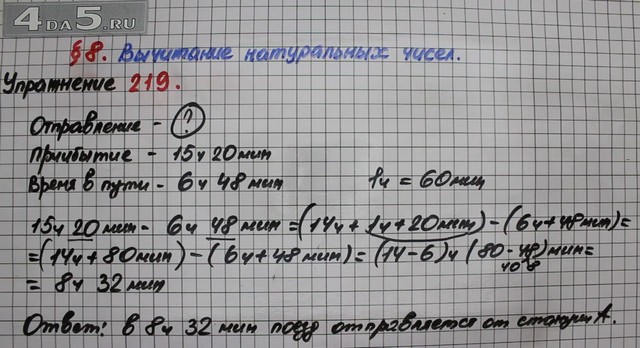 4DA5.RU
§8. Вычитание натуральных чисел.
Упражнение 219.
Отправление - ?
Прибытие - 15ч 20мин
Время в пути - 6ч 48 мин 1ч = 60мин
15ч 20мин - 6ч 48 мин = (14ч + 1ч + 20мин) - (6ч + 48мин) =
= (14ч + 80мин) - (6ч + 48мин) = (14 - 6)ч (80 - 48)мин =
40 8
= 8ч 32 мин
Ответ: в 8ч 32 мин поезд отправляется от станции А.